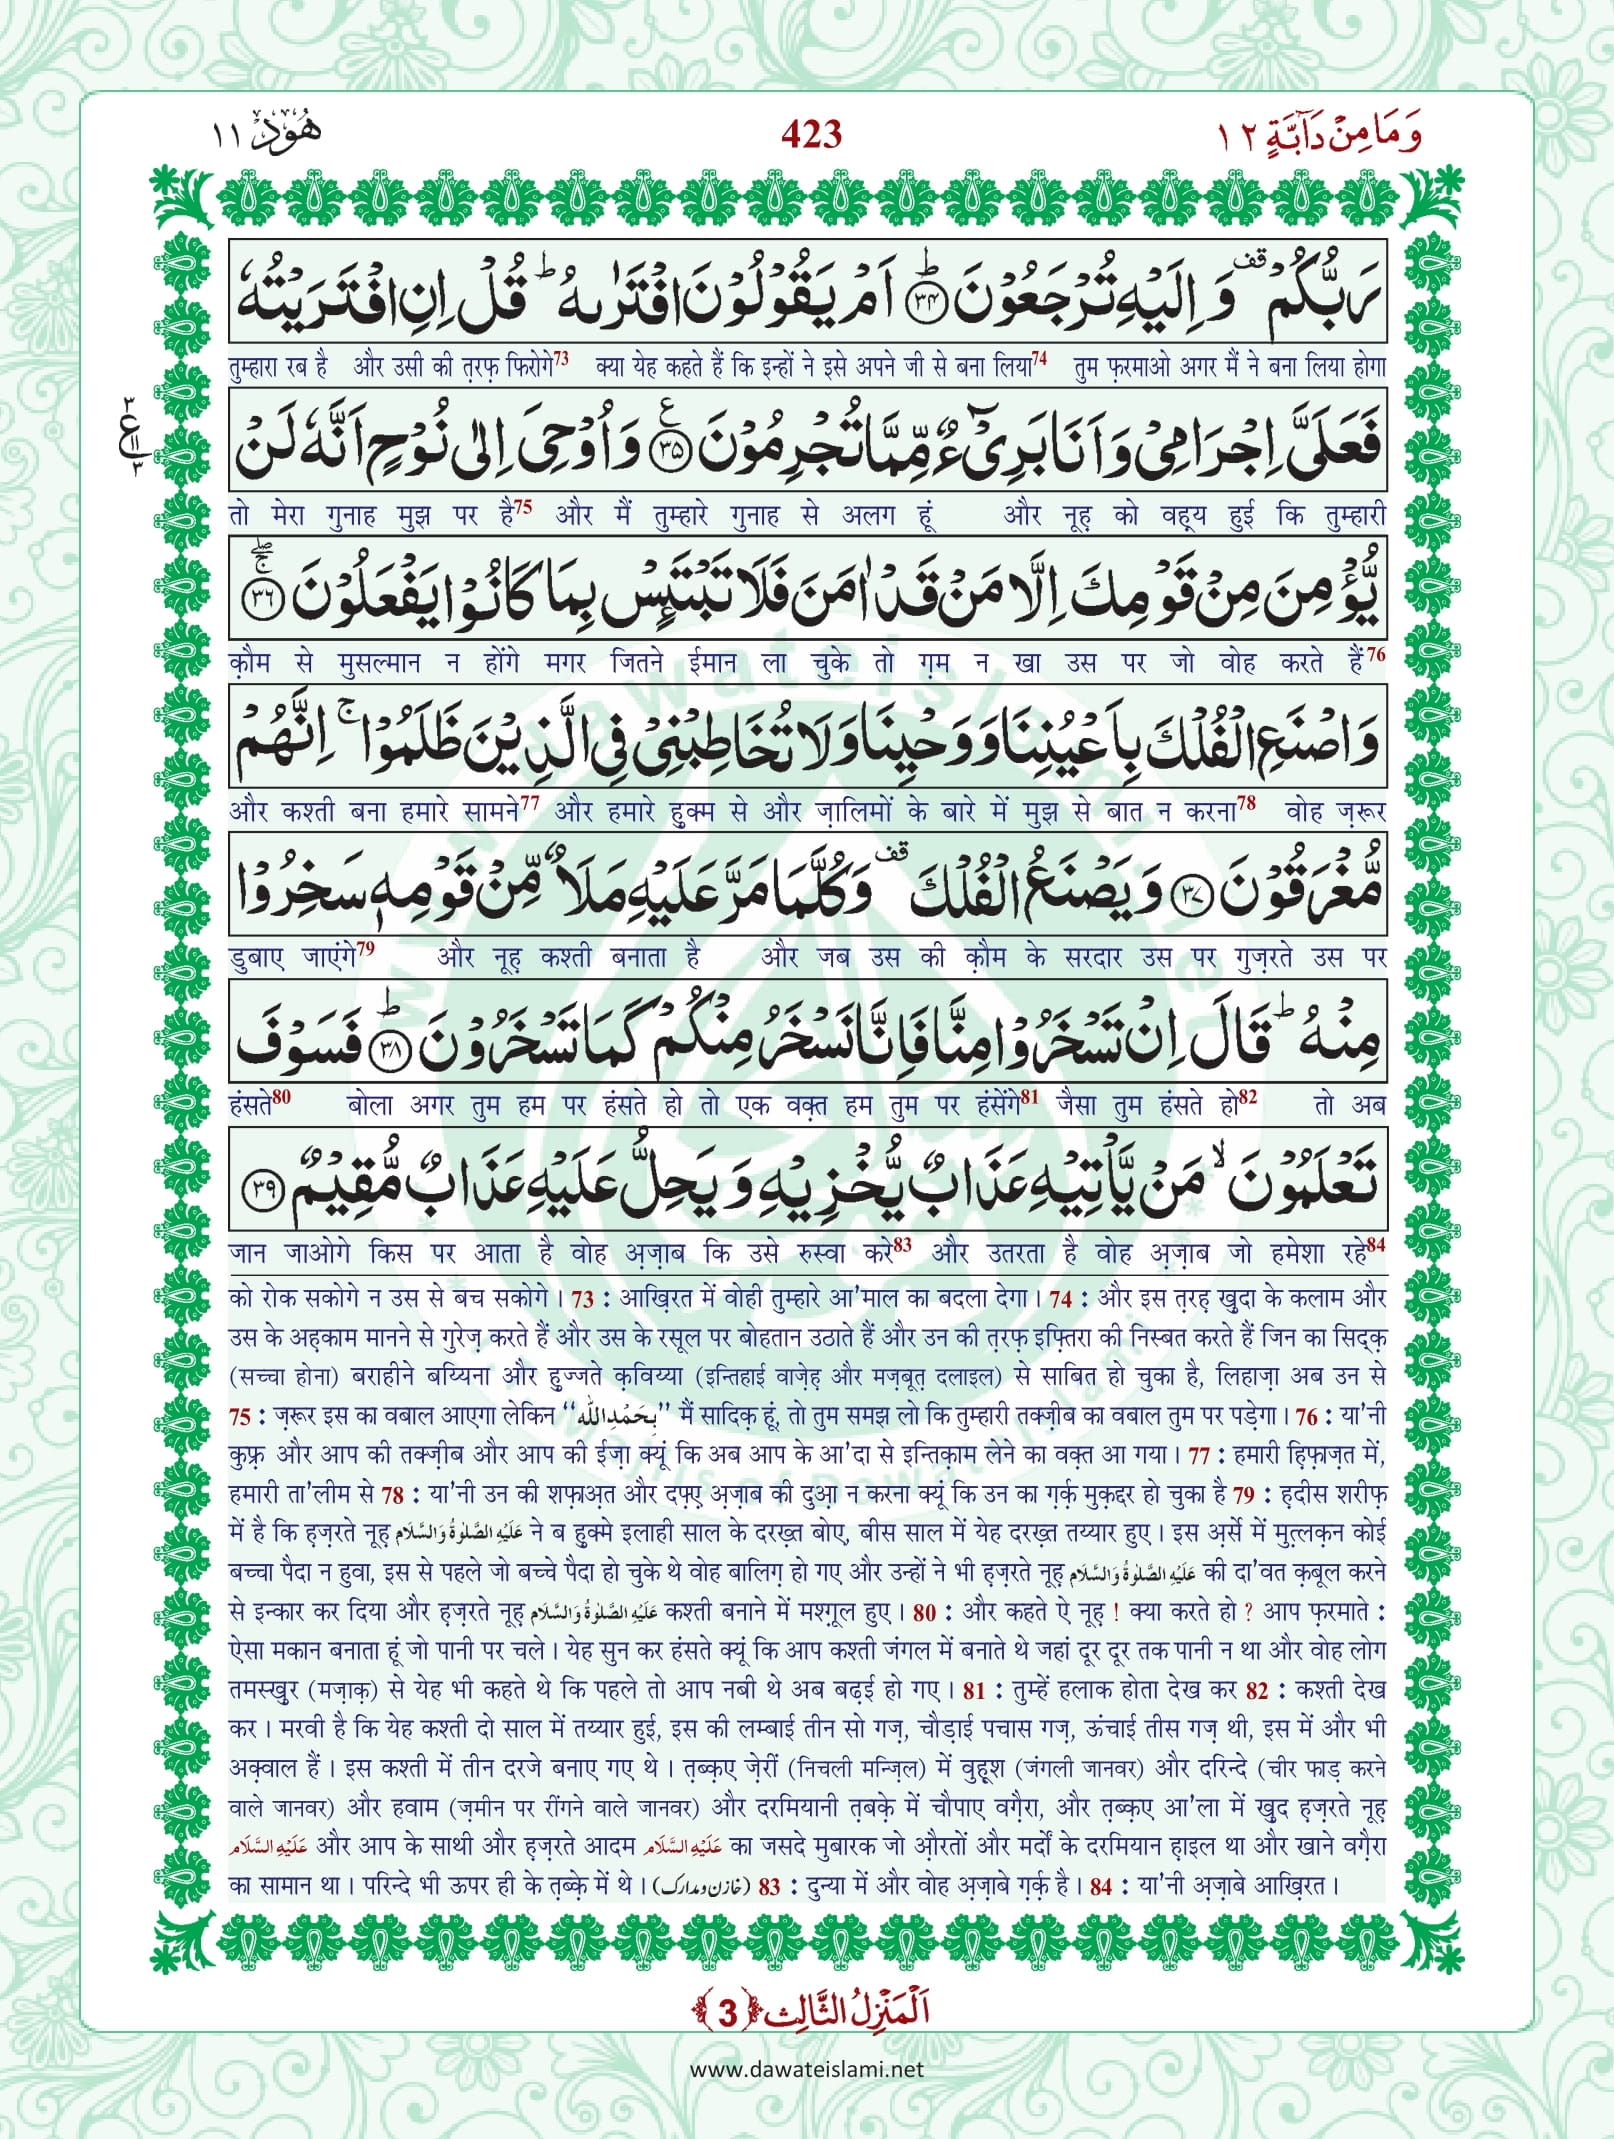 وَمَا مِنْ دَآبَّةٍ ١٢
423
هُوْد ١١
رَبُّكُمْ قف وَ اِلَیْهِ تُرْجَعُوْنَ ؕ﴿۳۴﴾ اَمْ یَقُوْلُوْنَ افْتَرٰىهُ ؕ قُلْ اِنِ افْتَرَیْتُهٗ
तुम्हारा रब है और उसी की त़रफ़ फिरोगे73 क्या येह कहते हैं कि इन्हों ने इसे अपने जी से बना लिया74 तुम फ़रमाओ अगर मैं ने बना लिया होगा
فَعَلَیَّ اِجْرَامِیْ وَ اَنَا بَرِیْٓءٌ مِّمَّا تُجْرِمُوْنَ ﴿۳۵﴾ ع وَ اُوْحِیَ اِلٰى نُوْحٍ اَنَّهٗ لَنْ
٣
ع
١١
٣
तो मेरा गुनाह मुझ पर है75 और मैं तुम्हारे गुनाह से अलग हूं और नूह़ को वह़्य हुई कि तुम्हारी
یُّؤْمِنَ مِنْ قَوْمِكَ اِلَّا مَنْ قَدْ اٰمَنَ فَلَا تَبْتَىٕسْ بِمَا كَانُوْا یَفْعَلُوْنَ ۚۖ﴿۳۶﴾
क़ौम से मुसल्मान न होंगे मगर जितने ईमान ला चुके तो ग़म न खा उस पर जो वोह करते हैं76
وَ اصْنَعِ الْفُلْكَ بِاَعْیُنِنَا وَ وَحْیِنَا وَ لَا تُخَاطِبْنِیْ فِی الَّذِیْنَ ظَلَمُوْا ۚ اِنَّهُمْ
और कश्ती बना हमारे सामने77 और हमारे हुक्म से और ज़ालिमों के बारे में मुझ से बात न करना78 वोह ज़रूर
مُّغْرَقُوْنَ ﴿۳۷﴾ وَ یَصْنَعُ الْفُلْكَ قف وَ كُلَّمَا مَرَّ عَلَیْهِ مَلَاٌ مِّنْ قَوْمِهٖ سَخِرُوْا
डुबाए जाएंगे79 और नूह़ कश्ती बनाता है और जब उस की क़ौम के सरदार उस पर गुज़रते उस पर
مِنْهُ ؕ قَالَ اِنْ تَسْخَرُوْا مِنَّا فَاِنَّا نَسْخَرُ مِنْكُمْ كَمَا تَسْخَرُوْنَ ؕ﴿۳۸﴾ فَسَوْفَ
हंसते80 बोला अगर तुम हम पर हंसते हो तो एक वक़्त हम तुम पर हंसेंगे81 जैसा तुम हंसते हो82 तो अब
تَعْلَمُوْنَ ۙ مَنْ یَّاْتِیْهِ عَذَابٌ یُّخْزِیْهِ وَ یَحِلُّ عَلَیْهِ عَذَابٌ مُّقِیْمٌ ﴿۳۹﴾
जान जाओगे किस पर आता है वोह अ़ज़ाब कि उसे रुस्वा करे83 और उतरता है वोह अ़ज़ाब जो हमेशा रहे84
को रोक सकोगे न उस से बच सकोगे। 73 : आख़िरत में वोही तुम्हारे आ'माल का बदला देगा। 74 : और इस त़रह़ ख़ुदा के कलाम और
उस के अह़काम मानने से गुरेज़ करते हैं और उस के रसूल पर बोहतान उठाते हैं और उन की त़रफ़ इफ़्तिरा की निस्बत करते हैं जिन का सिद्क़
(सच्चा होना) बराहीने बय्यिना और हुज्जते क़विय्या (इन्तिहाई वाज़ेह़ और मज़बूत़ दलाइल) से साबित हो चुका है, लिहाज़ा अब उन से
75 : ज़रूर इस का वबाल आएगा लेकिन ‘‘بِحَمْدِاللّٰه’’ मैं सादिक़ हूं, तो तुम समझ लो कि तुम्हारी तक्ज़ीब का वबाल तुम पर पड़ेगा। 76 : या'नी
कुफ़्र और आप की तक्ज़ीब और आप की ईज़ा क्यूं कि अब आप के आ'दा से इन्तिक़ाम लेने का वक़्त आ गया। 77 : हमारी ह़िफ़ाज़त में,
हमारी ता'लीम से 78 : या'नी उन की शफ़ाअ़त और दफ़्ए अ़ज़ाब की दुआ़ न करना क्यूं कि उन का ग़र्क़ मुक़द्दर हो चुका है 79 : ह़दीस शरीफ़
में है कि ह़ज़रते नूह़ عَلَیْهِ الصَّلٰوةُ وَالسَّلَام ने ब हुक्मे इलाही साल के दरख़्त बोए, बीस साल में येह दरख़्त तय्यार हुए। इस अ़र्से में मुत़्लक़न कोई
बच्चा पैदा न हुवा, इस से पहले जो बच्चे पैदा हो चुके थे वोह बालिग़ हो गए और उन्हों ने भी ह़ज़रते नूह़ عَلَیْهِ الصَّلٰوةُ وَالسَّلَام की दा'वत क़बूल करने
से इन्कार कर दिया और ह़ज़रते नूह़ عَلَیْهِ الصَّلٰوةُ وَالسَّلَام कश्ती बनाने में मश्ग़ूल हुए। 80 : और कहते ऐ नूह़ ! क्या करते हो ? आप फ़रमाते :
ऐसा मकान बनाता हूं जो पानी पर चले। येह सुन कर हंसते क्यूं कि आप कश्ती जंगल में बनाते थे जहां दूर दूर तक पानी न था और वोह लोग
तमस्ख़ुर (मज़ाक़) से येह भी कहते थे कि पहले तो आप नबी थे अब बढ़ई हो गए। 81 : तुम्हें हलाक होता देख कर 82 : कश्ती देख
कर। मरवी है कि येह कश्ती दो साल में तय्यार हुई, इस की लम्बाई तीन सो गज़, चौड़ाई पचास गज़, ऊंचाई तीस गज़ थी, इस में और भी
अक़्वाल हैं। इस कश्ती में तीन दरजे बनाए गए थे। त़ब्क़ए ज़ेरीं (निचली मन्ज़िल) में वुह़ूश (जंगली जानवर) और दरिन्दे (चीर फाड़ करने
वाले जानवर) और हवाम (ज़मीन पर रींगने वाले जानवर) और दरमियानी त़बके़ में चौपाए वग़ैरा, और त़ब्क़ए आ'ला में ख़ुद ह़ज़रते नूह़
عَلَیْهِ السَّلَام और आप के साथी और ह़ज़रते आदम عَلَیْهِ السَّلَام का जसदे मुबारक जो औ़रतों और मर्दों के दरमियान ह़ाइल था और खाने वग़ैरा
का सामान था। परिन्दे भी ऊपर ही के त़ब्के़ में थे। (خازن و مدارک) 83 : दुन्या में और वोह अ़ज़ाबे ग़र्क़ है। 84 : या'नी अ़ज़ाबे आख़िरत।
اَلْمَنْزِلُ الثَّالِث ﴿3﴾
www.dawateislami.net